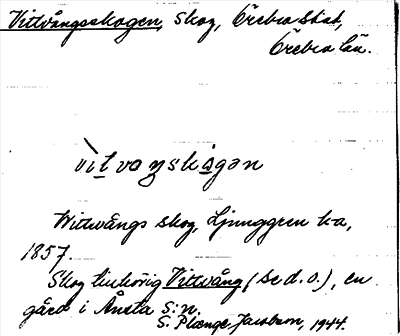 Vittvångsskogen, Skog, Örebro stad,
Örebro län.
vìtvaŋskògən
Wittwångs skog, Ljunggren ka,
1857.
Skog tillhörig Vittvång (se d.o.), en
gård i Ånsta s:n.
S. Plænge Jacobson, 1944.